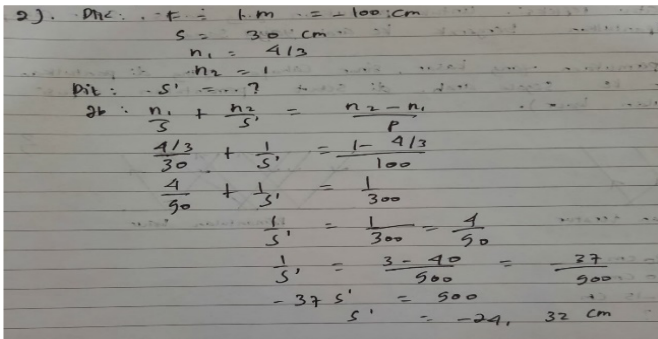 2). Dik : r = 1 m = - 100 cm
s = 30 cm
n₁ = 4/3
n₂ = 1
Dit : s' = ... ?
Jb : n₁/s + n₂/s' = n₂ - n₁/R
4/3/30 + 1/s' = 1 - 4/3/100
4/90 + 1/s' = 1/300
1/s' = 1/300 - 4/90
1/s' = 3 - 40/900 = - 37/900
- 37 s' = 900
s' = - 24, 32 cm